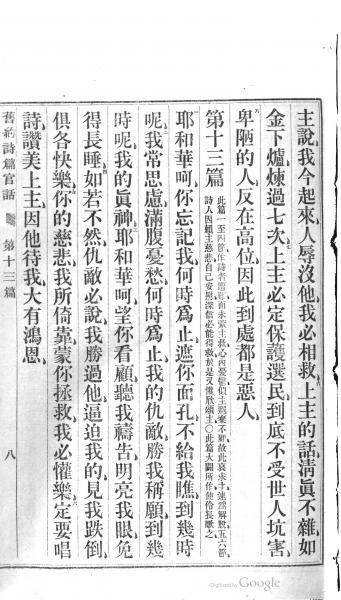 主說、我今起來、人辱沒他、我必相救、上主的話、清眞不雜、如
金下爐、煉過七次、上主必定保護選民、到底不受世人坑害、
卑陋的人、反在高位、因此到處都是惡人、
第十三篇
耶和華呵、你忘記我、何時爲止、遮你面孔、不給我瞧、到幾時
呢、我常思慮、滿腹憂愁、何時爲止、我的仇敵、勝我稱願、到幾
時呢、我的眞神、耶和華呵、望你看顧、聽我禱告、明亮我眼、免
得長睡、如若不然、仇敵必說、我勝過他、逼迫我的、見我跌倒、
俱各快樂、你的慈悲、我所倚靠、蒙你拯救、我必懽樂、定要唱
詩、讚美上主、因他待我、大有鴻恩、
舊約詩篇官話 第十三篇 八
Digitized by Google